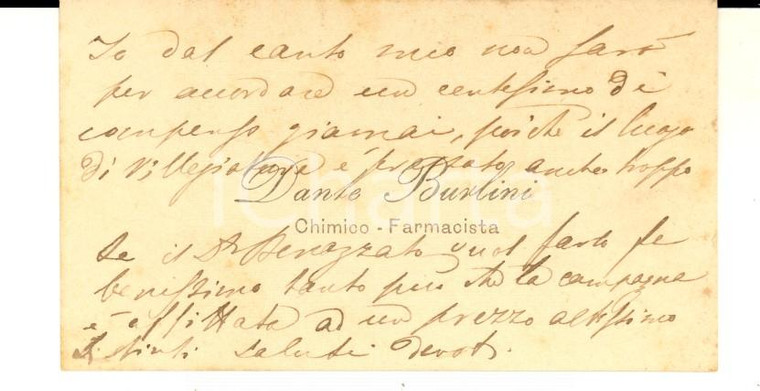 Io dal canto mio non farò
per accordare un centesimo di
compenso giamai, poichè il luogo
di villegiatura è prezzato anche troppo
Dante Burlini
Chimico - Farmacista
Se il Dr Benazzato vuol farlo fa
benissimo tanto più che la campagna
è affittata ad un prezzo altissimo
Distinti saluti devot.